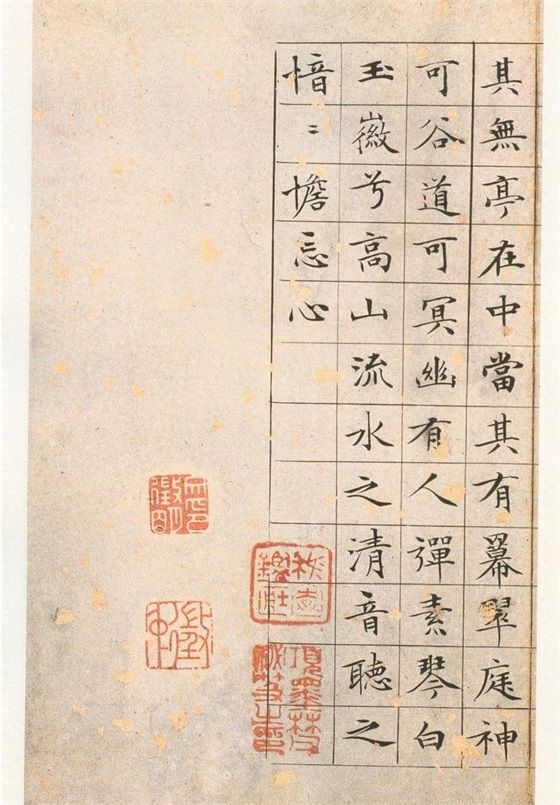 其無亭在中當其有羃翠庭神
可谷道可冥幽有人彈素琴白
玉徽兮高山流水之清音聽之
愔〻憺忘心